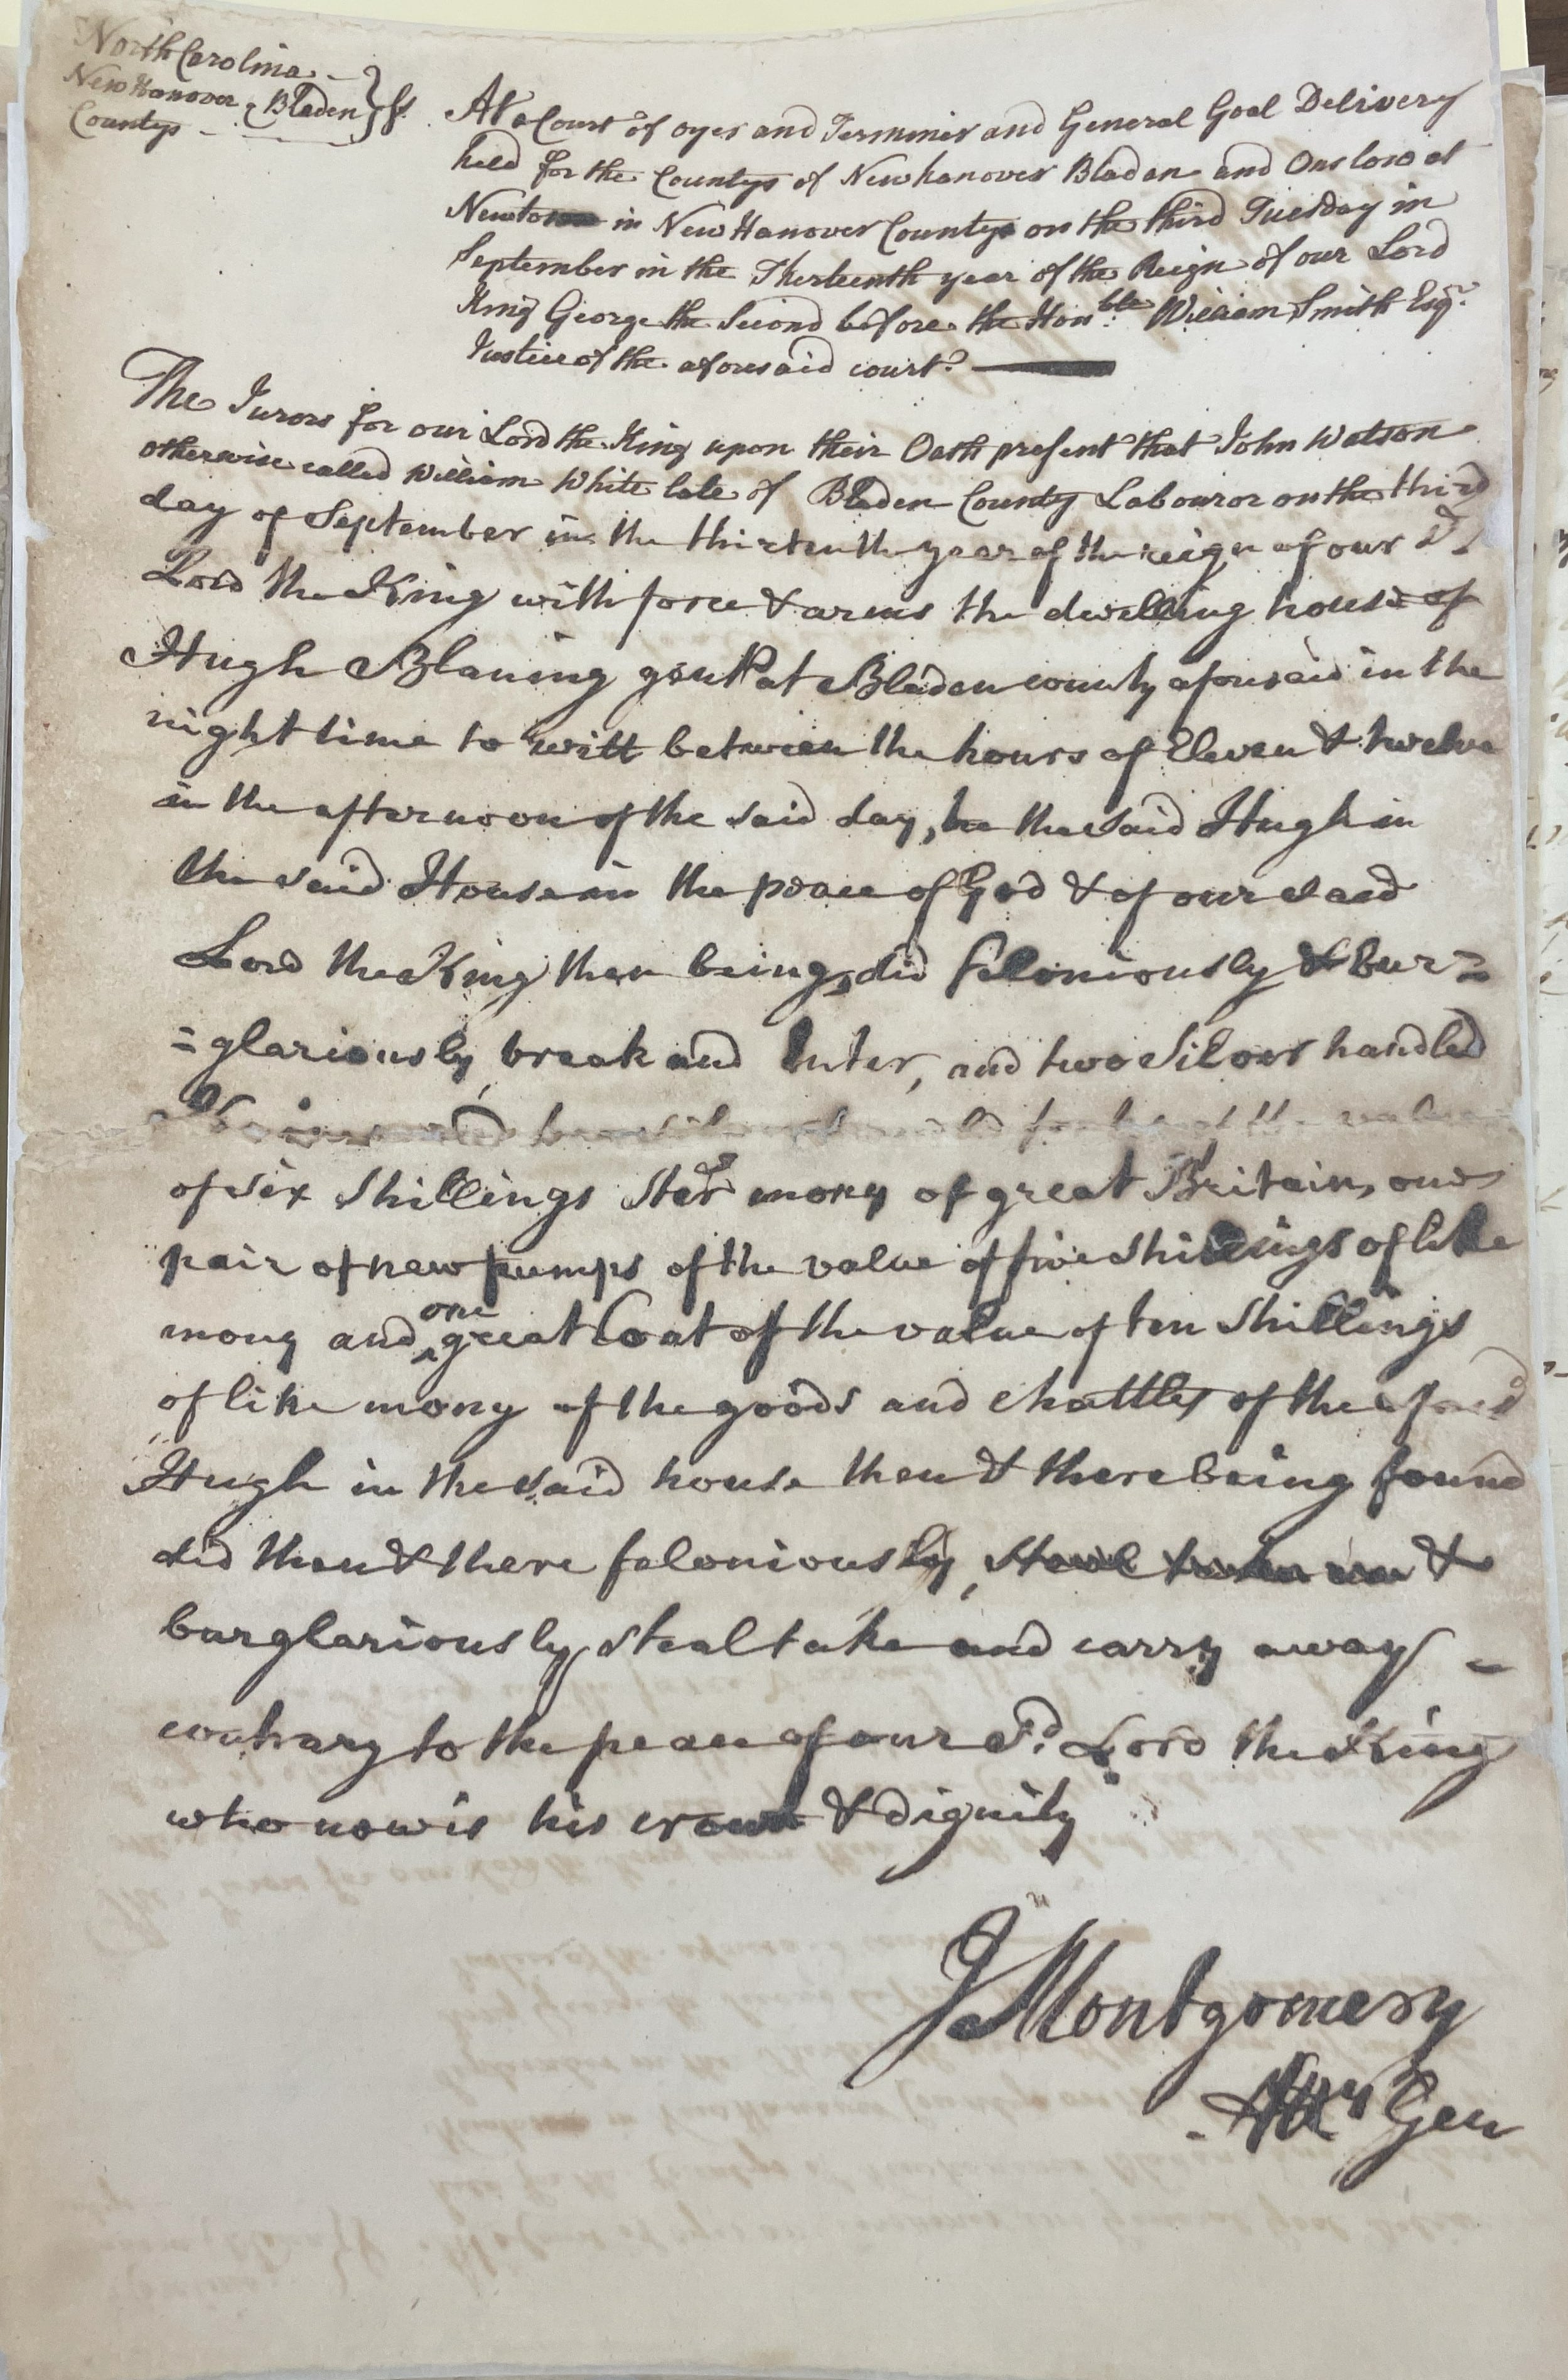 North Carolina
New Hanover & Bladen } ss.
Countys
At a Court of oyer and Terminer and General Goal Delivery
held for the Countys of New hanover Bladen and Onslow at
Newton in New Hanover County on the third Tuesday in
September in the Thirteenth year of the Reign of our Lord
King George the Second before the Honble William Smith Esqr.
Justice of the aforesaid court.
The Jurors for our Lord the King upon their Oath present that John Watson
otherwise called William White late of Bladen County Labouror on the third
day of September in the thirteenth year of the reign of our sd
Lord the King with force & arms the dwelling house of
Hugh Blaning gent at Bladen county aforesaid in the
night time to witt between the hours of Eleven & twelve
in the afternoon of the said day, he the said Hugh in
the said House in the peace of God & of our said
Lord the King then being, did feloniously & bur=
=glariously break and Enter, and two Silver handled
of the value
of six Shillings Ster mony of great Britain, one
pair of new pumps of the value of five Shillings of like
mony and one great Coat of the value of ten Shillings
of like mony of the goods and chattles of the aforesd
Hugh in the said house then & there being found
did then & there feloniously, &
burglariously steal take and carry away
contrary to the peace of our sd. Lord the King
who now is his crown & dignity
J Montgomery
Atty Gen